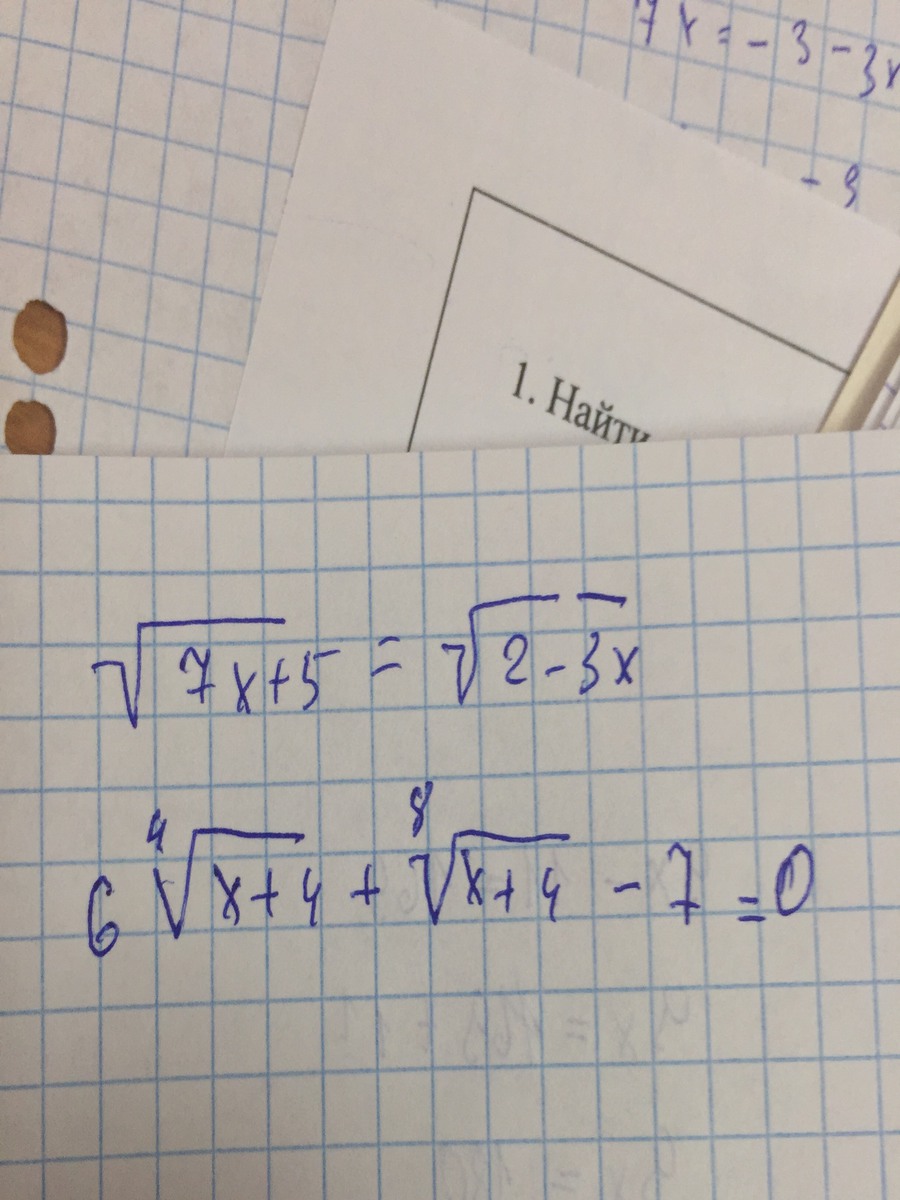 7x = - 3 - 3x
1. Найти
√7x+5 = √2-3x
6 ⁴√x+4 + ⁸√x+4 - 7 = 0